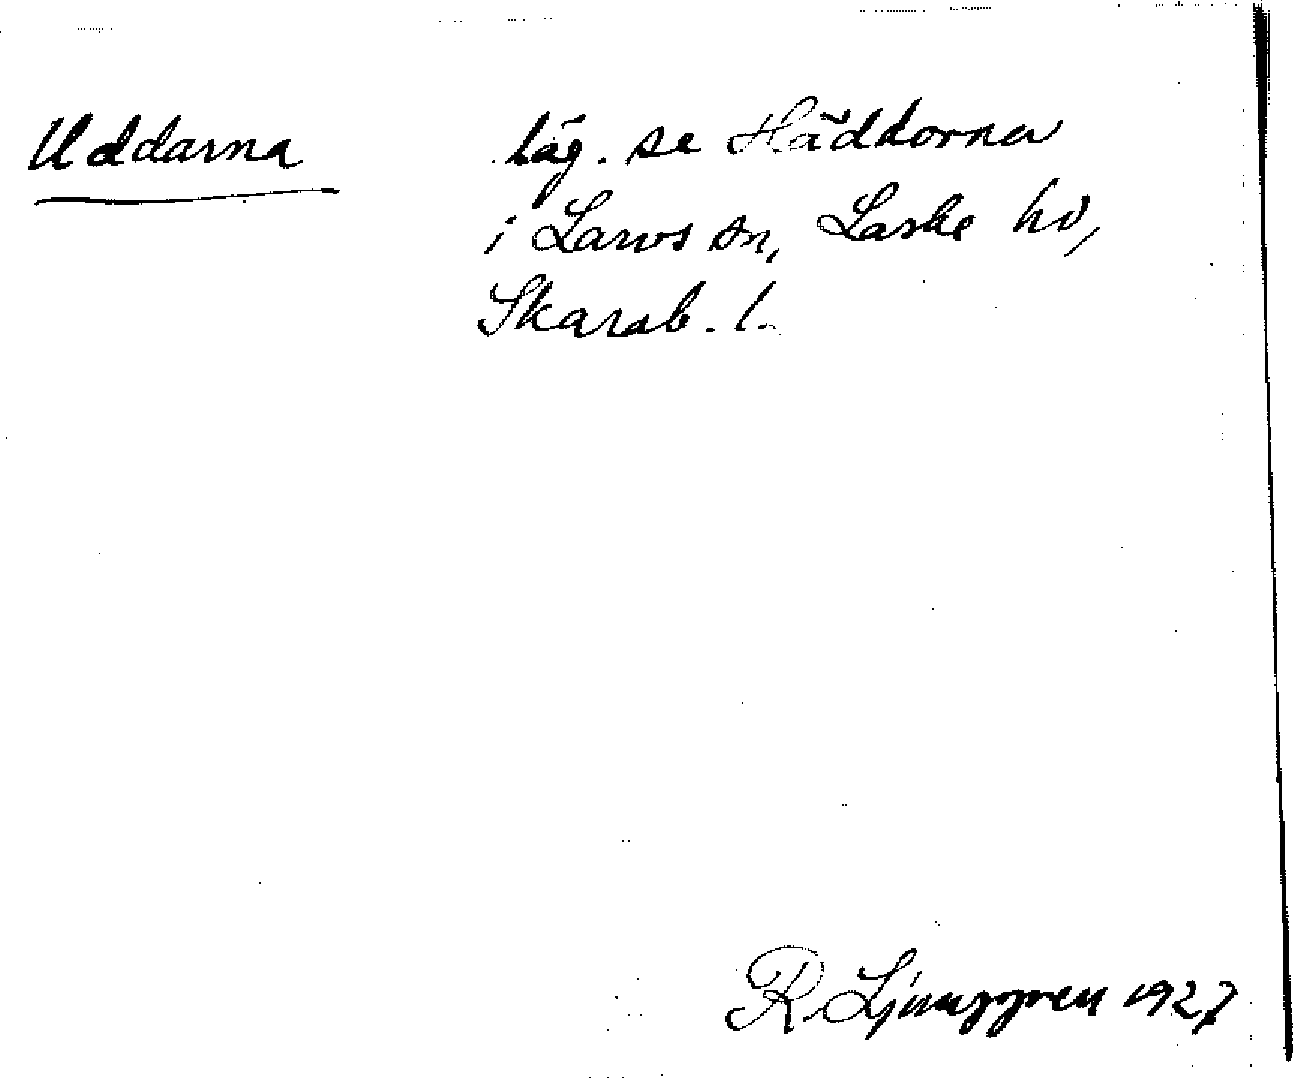 Uddarna
läg. se Häddorna
i Larvs sn, Laske hd,
Skarab. l.
R. Ljunggren 1927